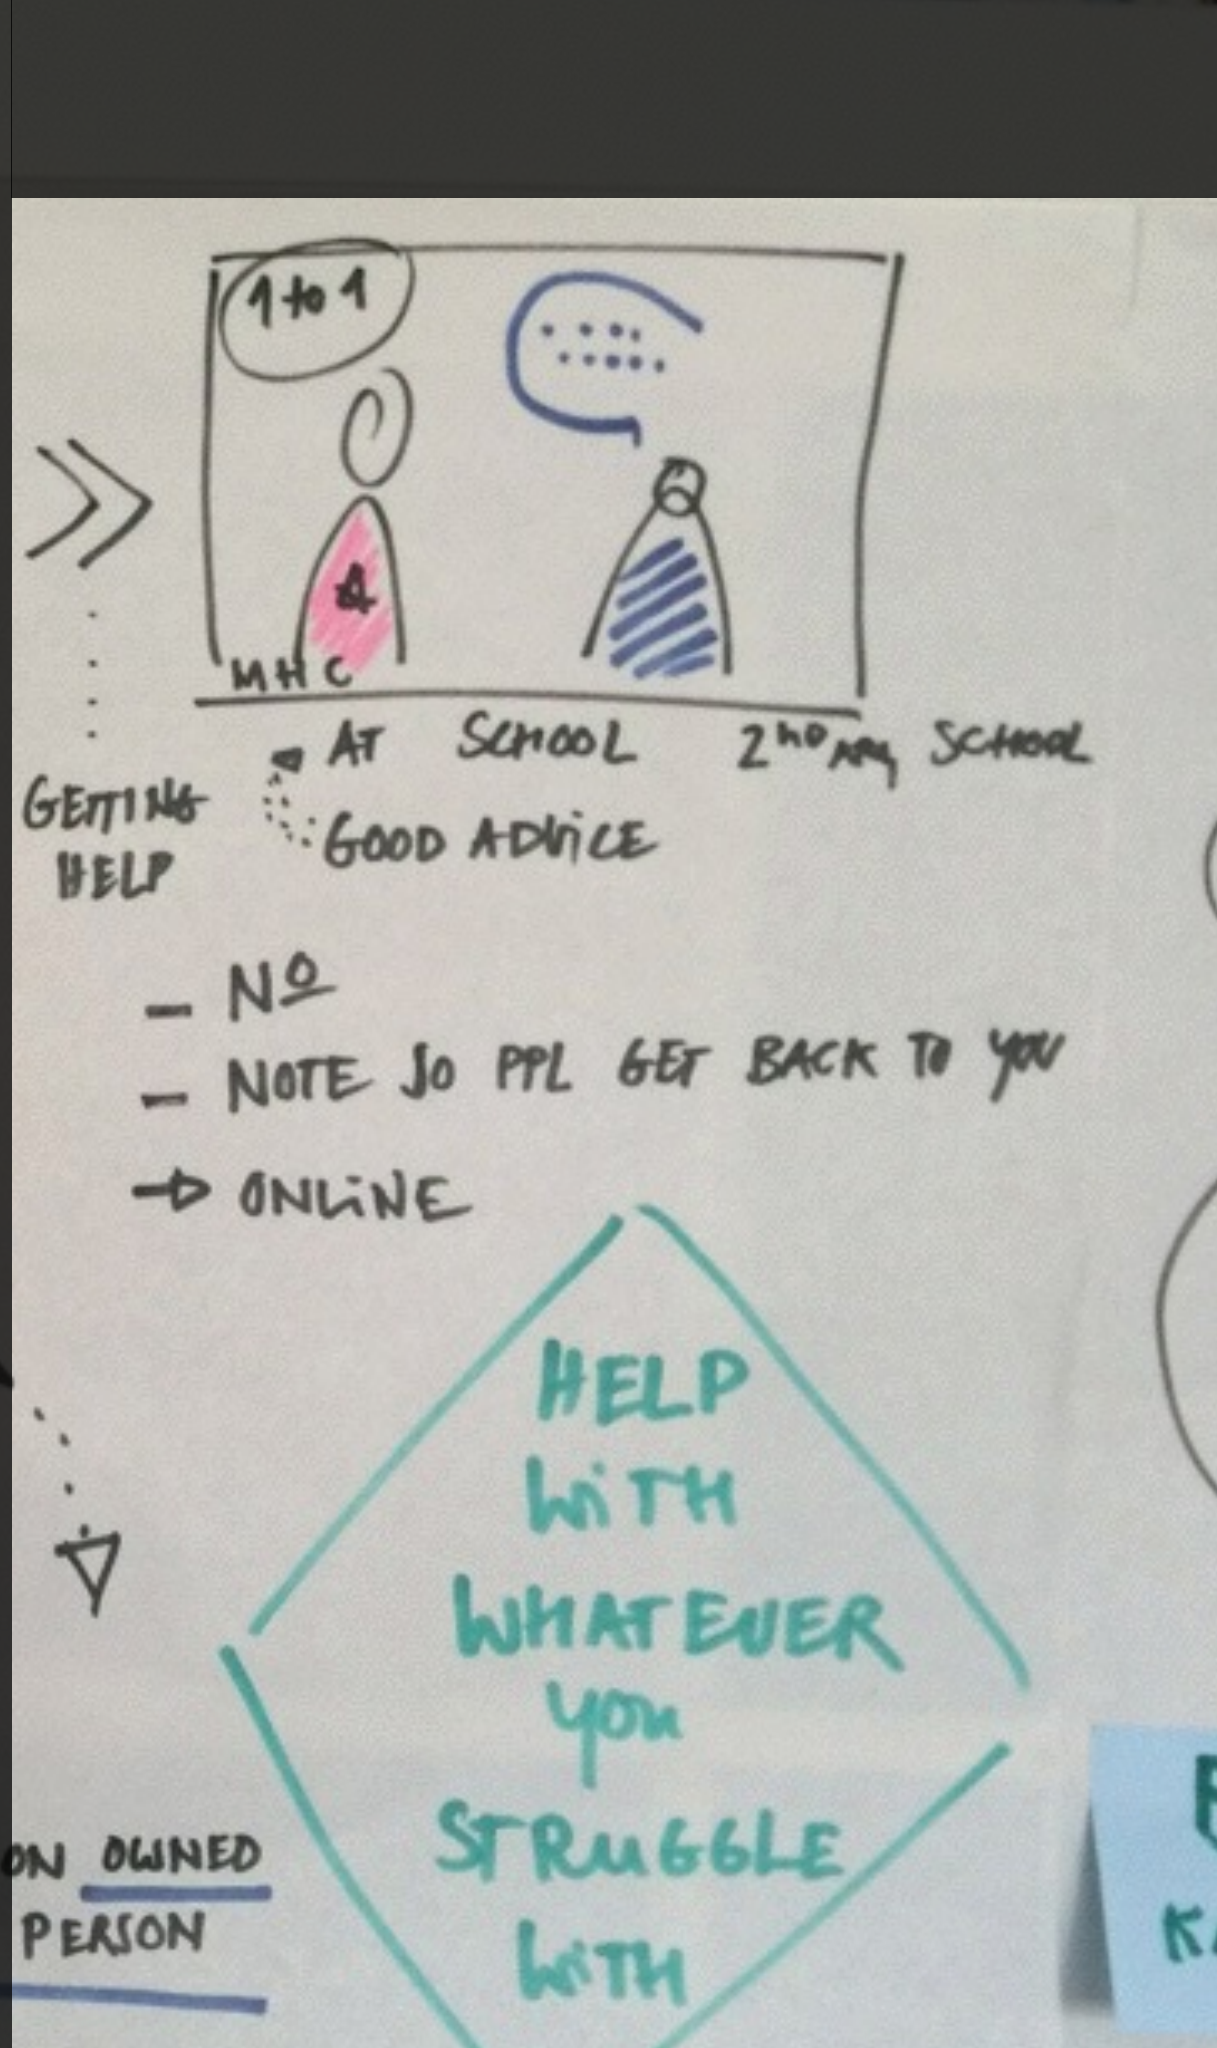 1 to 1
MHC
AT SCHOOL 2ND ARY SCHOOL
GETTING
HELP
GOOD ADVICE
- Nº
- NOTE SO PPL GET BACK TO YOU
→ ONLINE
HELP
WITH
WHATEVER
YOU
STRUGGLE
WITH
ON OWNED
PERSON